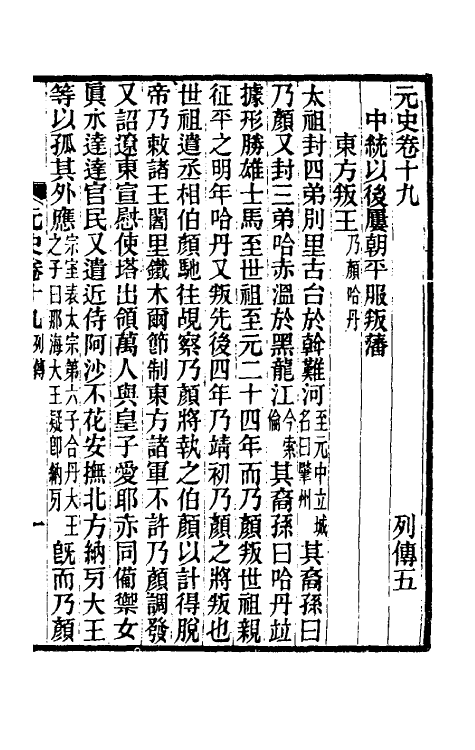 元史卷十九
列傳五
中統以後屢朝平服叛藩
東方叛王乃顏哈丹
太祖封四弟別里古台於斡難河至元中立城名曰肇州其裔孫曰
乃顏又封三弟哈赤溫於黑龍江今索倫其裔孫曰哈丹竝
據形勝雄士馬至世祖至元二十四年而乃顏叛世祖親
征平之明年哈丹又叛先後四年乃靖初乃顏之將叛也
世祖遣丞相伯顏馳往覘察乃顏將執之伯顏以計得脫
帝乃敕諸王闍里鐵木爾節制東方諸軍不許乃顏調發
又詔遼東宣慰使塔出領萬人與皇子愛耶赤同備禦女
眞水達達官民又遣近侍阿沙不花安撫北方納牙大王
等以孤其外應宗室表太宗第六子合丹大王之子曰那海大王疑卽納牙旣而乃顏
元史卷十九列傳
一